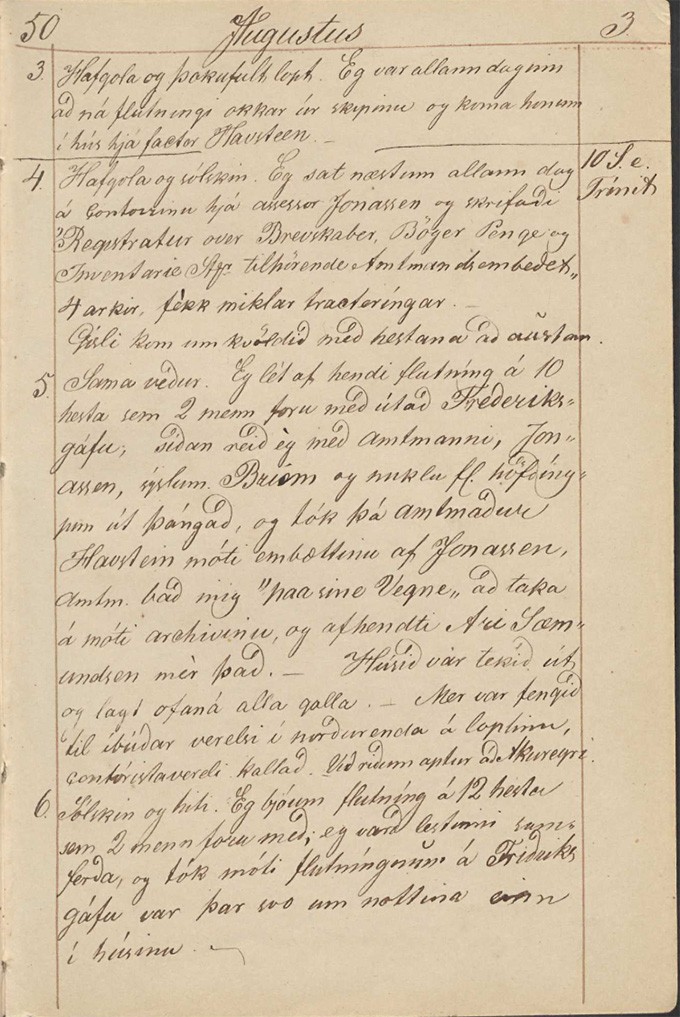 50 Augustus 3.
3. Hafgola og þokufullt lopt. Eg var allann daginn
að ná flutningi okkar úr skipinu og koma honum
í hús hjá factor Havsteen. –
4. Hafgola og sólskin. Eg sat næstum allann dag 10 S. e.
á contorinu hjá assessor Jónassen og skrifaði Trinit
"Registratur over Brevskaber, Böger Penge og
Inventarie tilhörende Amtmandsembedet„
4 arkir, fékk miklar tracteríngar. –
Gísli kom um kvöldið með hestana að austan.
5. Sama veður. Eg lét af hendi flutníng á 10
hesta sem 2 menn foru með útað Frederiks=
gáfu, síðan reið èg með amtmanni, Jón=
assen, syslum. Briem og miklu fl. höfðíng=
jum út þángað, og tók þá amtmaður
Havstein móti embættinu af Jonassen,
Amtm. bað mig "paa sine Vegne„ að taka
á móti archivinu, og afhendti Ari Sæm=
undsen mèr það. – Húsið var tekið út
og lagt ofaná alla galla. – Mer var fengið
til íbúðar verelsi í norðurenda á loptinu,
contóristavereli kallað. Við riðum aptur að Akureyri.
6. Sólskin og hiti. Eg bjóum flutníng á 12 hesta
sem 2 menn foru með; eg varð lestinni sam=
ferða, og tók móti flutníngnum á Friðriks
gáfu var þar svo um nottina einn
í húsinu. –